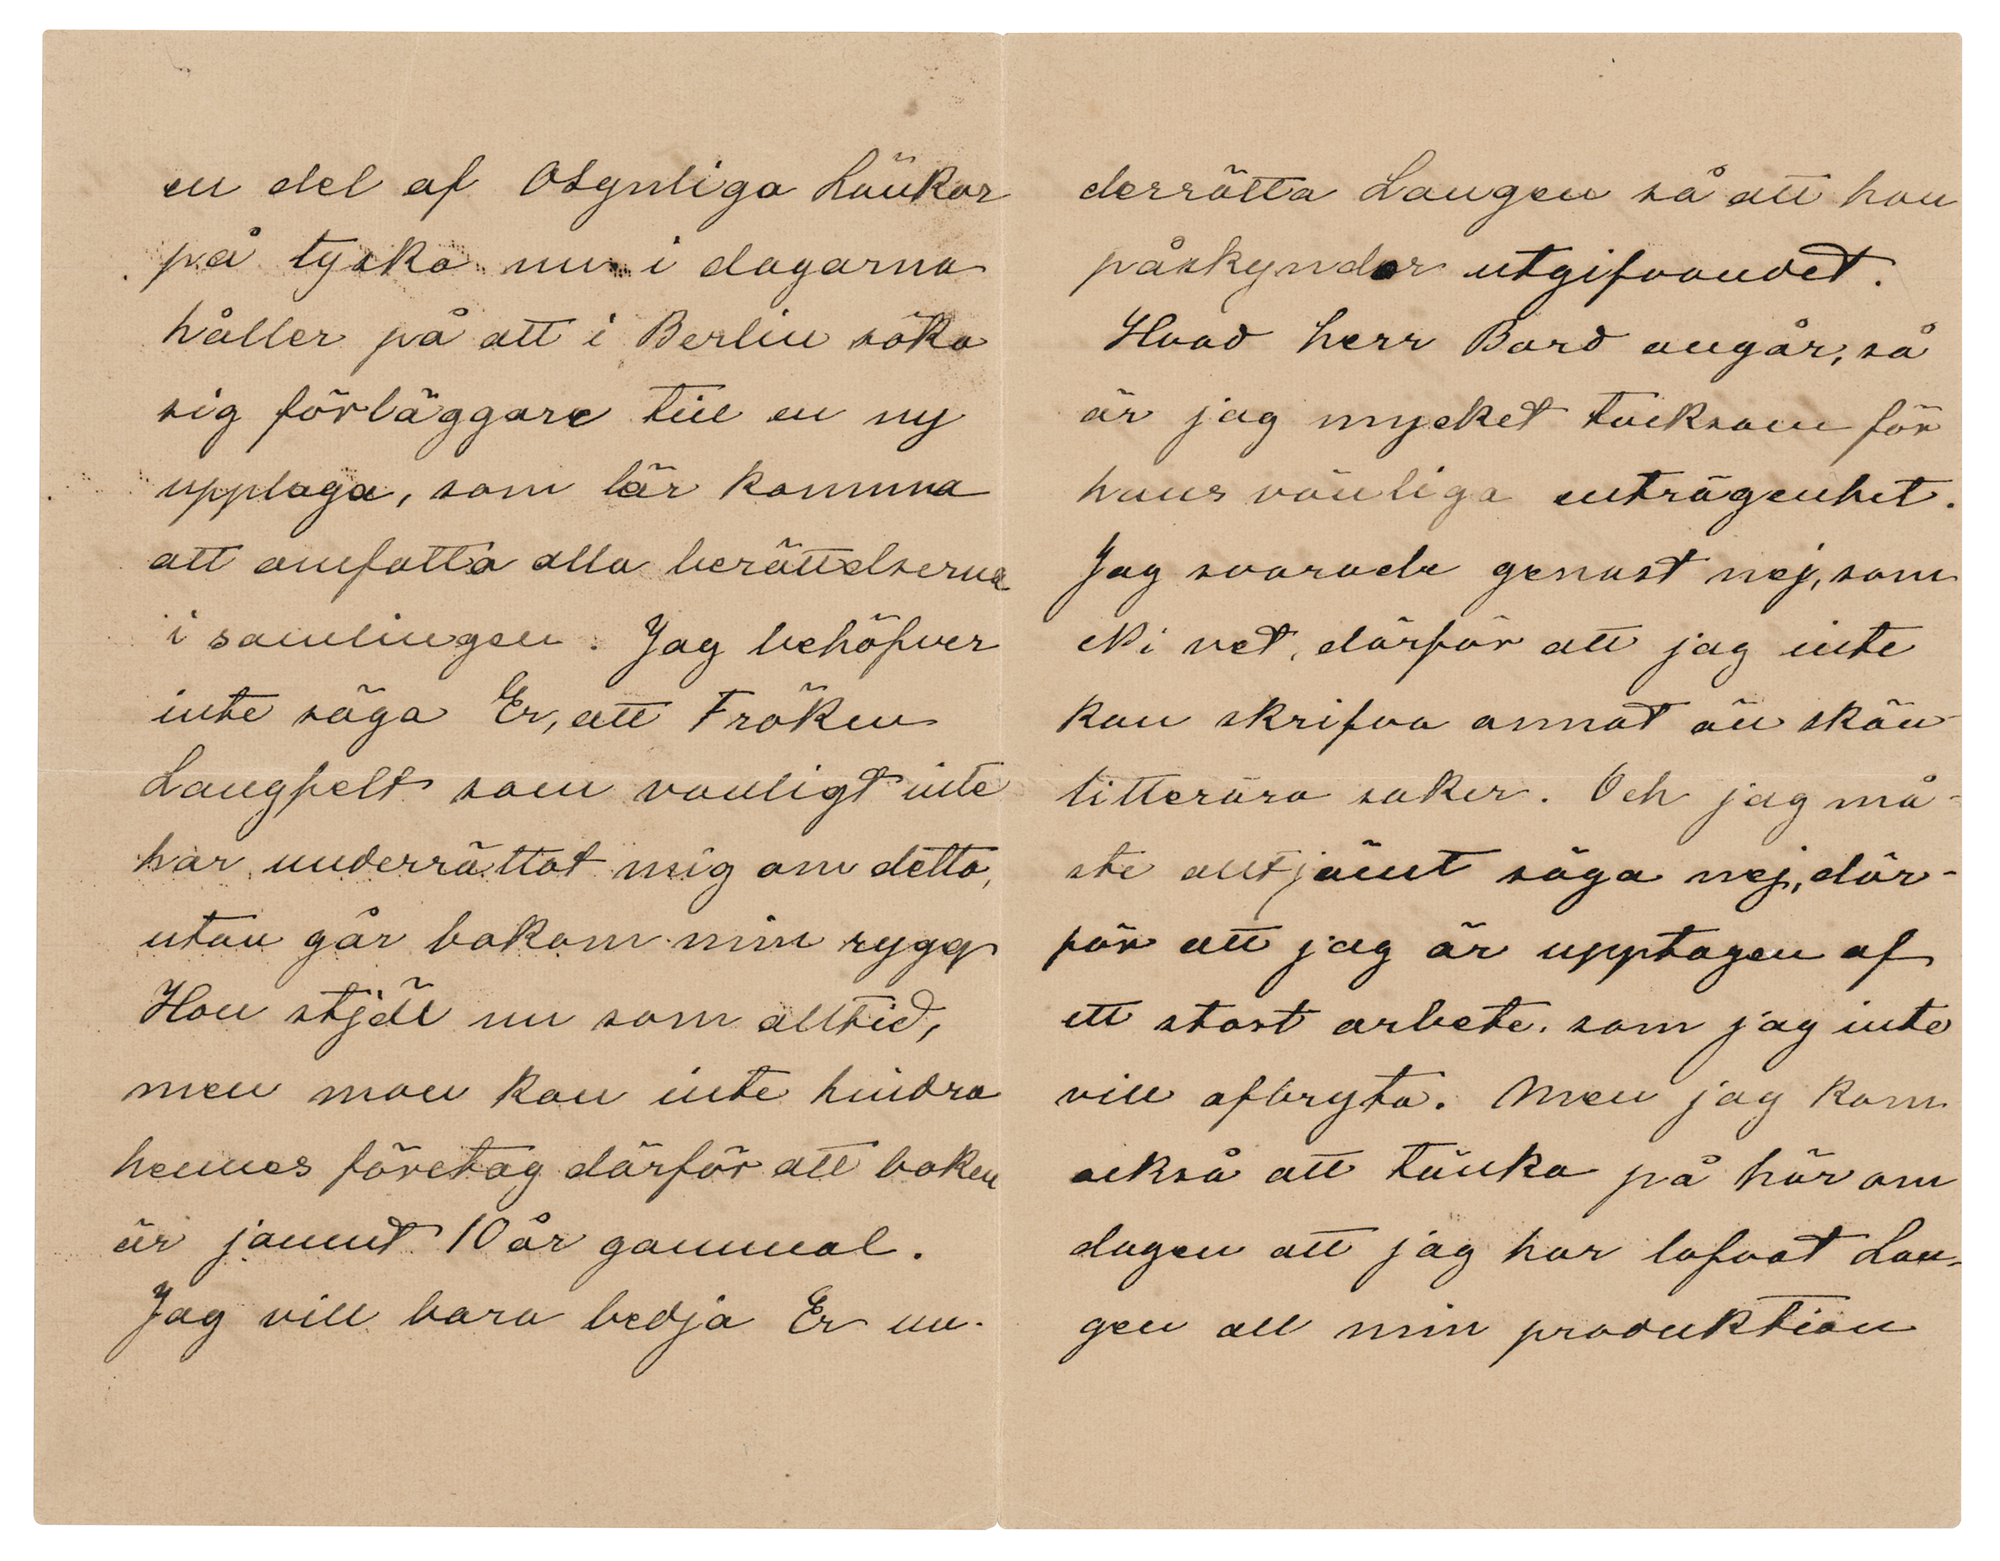 en del af Osynliga Länkar
på tyska nu i dagarna
håller på att i Berlin söka
sig förläggare till en ny
upplaga, som lär komma
att omfatta alla berättelserna
i samlingen. Jag behöfver
inte säga Er, att Fröken
Langfelt som vanligt inte
har underrättat mig om detta,
utan går bakom min rygg
Hon stjäl nu som alltid,
men man kan inte hindra
hennes företag därför att boken
är jämnt 10 år gammal.
Jag vill bara bedja Er un-
derrätta Langen så att han
påskyndar utgifvandet.
Hvad herr Bard angår, så
är jag mycket tacksam för
hans vänliga enträgenhet.
Jag svarade genast nej, som
Ni vet, därför att jag inte
kan skrifva annat än skön-
litterära saker. Och jag må-
ste alltjämt säga nej, där-
för att jag är upptagen af
ett stort arbete, som jag inte
vill afbryta. Men jag kom
också att tänka på här om
dagen att jag har lofvat Lan-
gen all min produktion